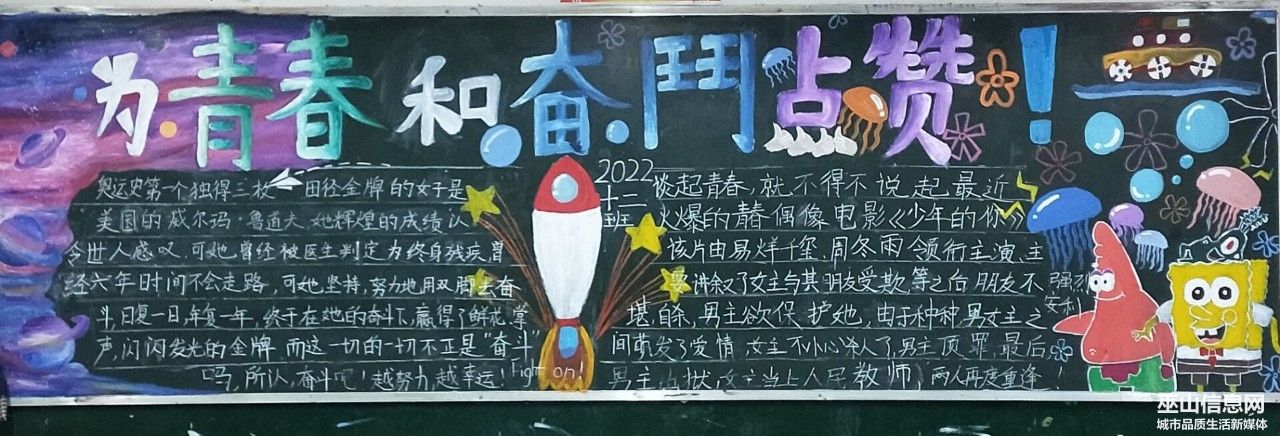 为青春和奋鬥点赞!
奥运史第一个独得三枚田径金牌的女子是
美国的威尔玛·鲁道夫,她辉煌的成绩让
令世人感叹,可她曾经被医生判定为终身残疾,曾
经六年时间不会走路,可她坚持,努力地用双脚去奋
斗,日复一日,年复一年,终于在她的奋斗下,赢得了鲜花,掌
声,闪闪发光的金牌,而这一切的一切不正是"奋斗"
吗,所以,奋斗吧!越努力,越幸运!Fight on!
2022
十二
班
谈起青春,就不得不说起最近
火爆的青春偶像电影《少年的你》
该片由易烊千玺、周冬雨领衔主演,主
要讲叙了女主与其朋友受欺等之后,朋友不
堪自杀,男主欲保护她,由于种种,男女主之
间萌发了爱情,女主不小心杀人了,男主顶罪,最后
男主出狱,女主当上人民教师,两人再度重逢!
强烈
安利
巫山信息网
城市品质生活新媒体